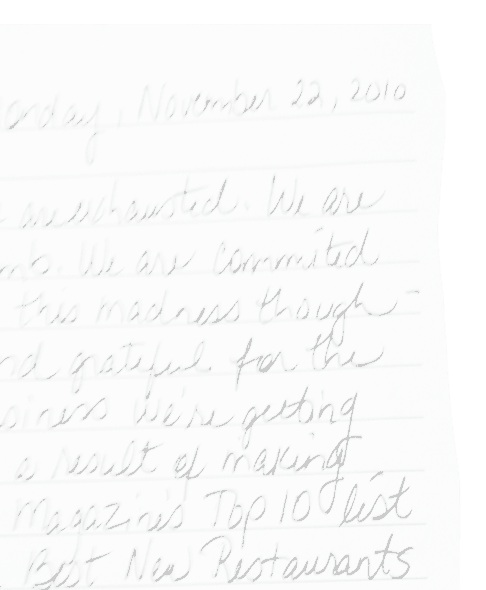 onday, November 22, 2010
are exhausted. We are
mb. We are commited
this madness though -
nd grateful for the
siness we're getting
a result of making
Magazine's Top 10 list
Best New Restaurants